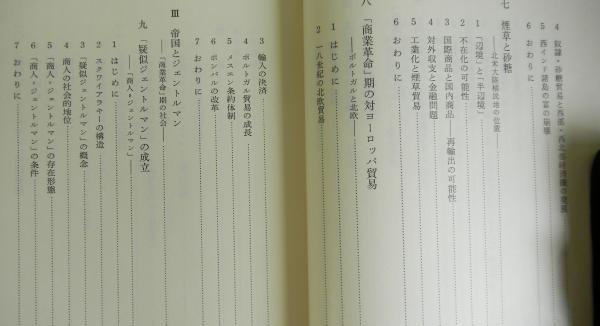 4 奴隷・砂糖貿易と西部・西北部経済圏の発展
5 西インド諸島の富の崩壊
6 おわりに
七 煙草と砂糖
――北米大陸植民地の位置――
1 「辺境」と「半辺境」
2 不在化の可能性
3 国際商品と国内商品――再輸出の可能性
4 対外収支と金融問題
5 工業化と煙草貿易
6 おわりに
八 「商業革命」期の対ヨーロッパ貿易
――ポルトガルと北欧――
1 はじめに
2 一八世紀の北欧貿易
3 輸入の決済
4 ポルトガル貿易の成長
5 メスエン条約体制
6 ポンバルの改革
7 おわりに
Ⅲ 帝国とジェントルマン
――「商業革命」期の社会――
九 「疑似ジェントルマン」の成立
――「商人・ジェントルマン」――
1 はじめに
2 スクワイアラキーの構造
3 「疑似ジェントルマン」の概念
4 商人の社会的地位
5 「商人・ジェントルマン」の存在形態
6 「商人・ジェントルマン」の条件
7 おわりに